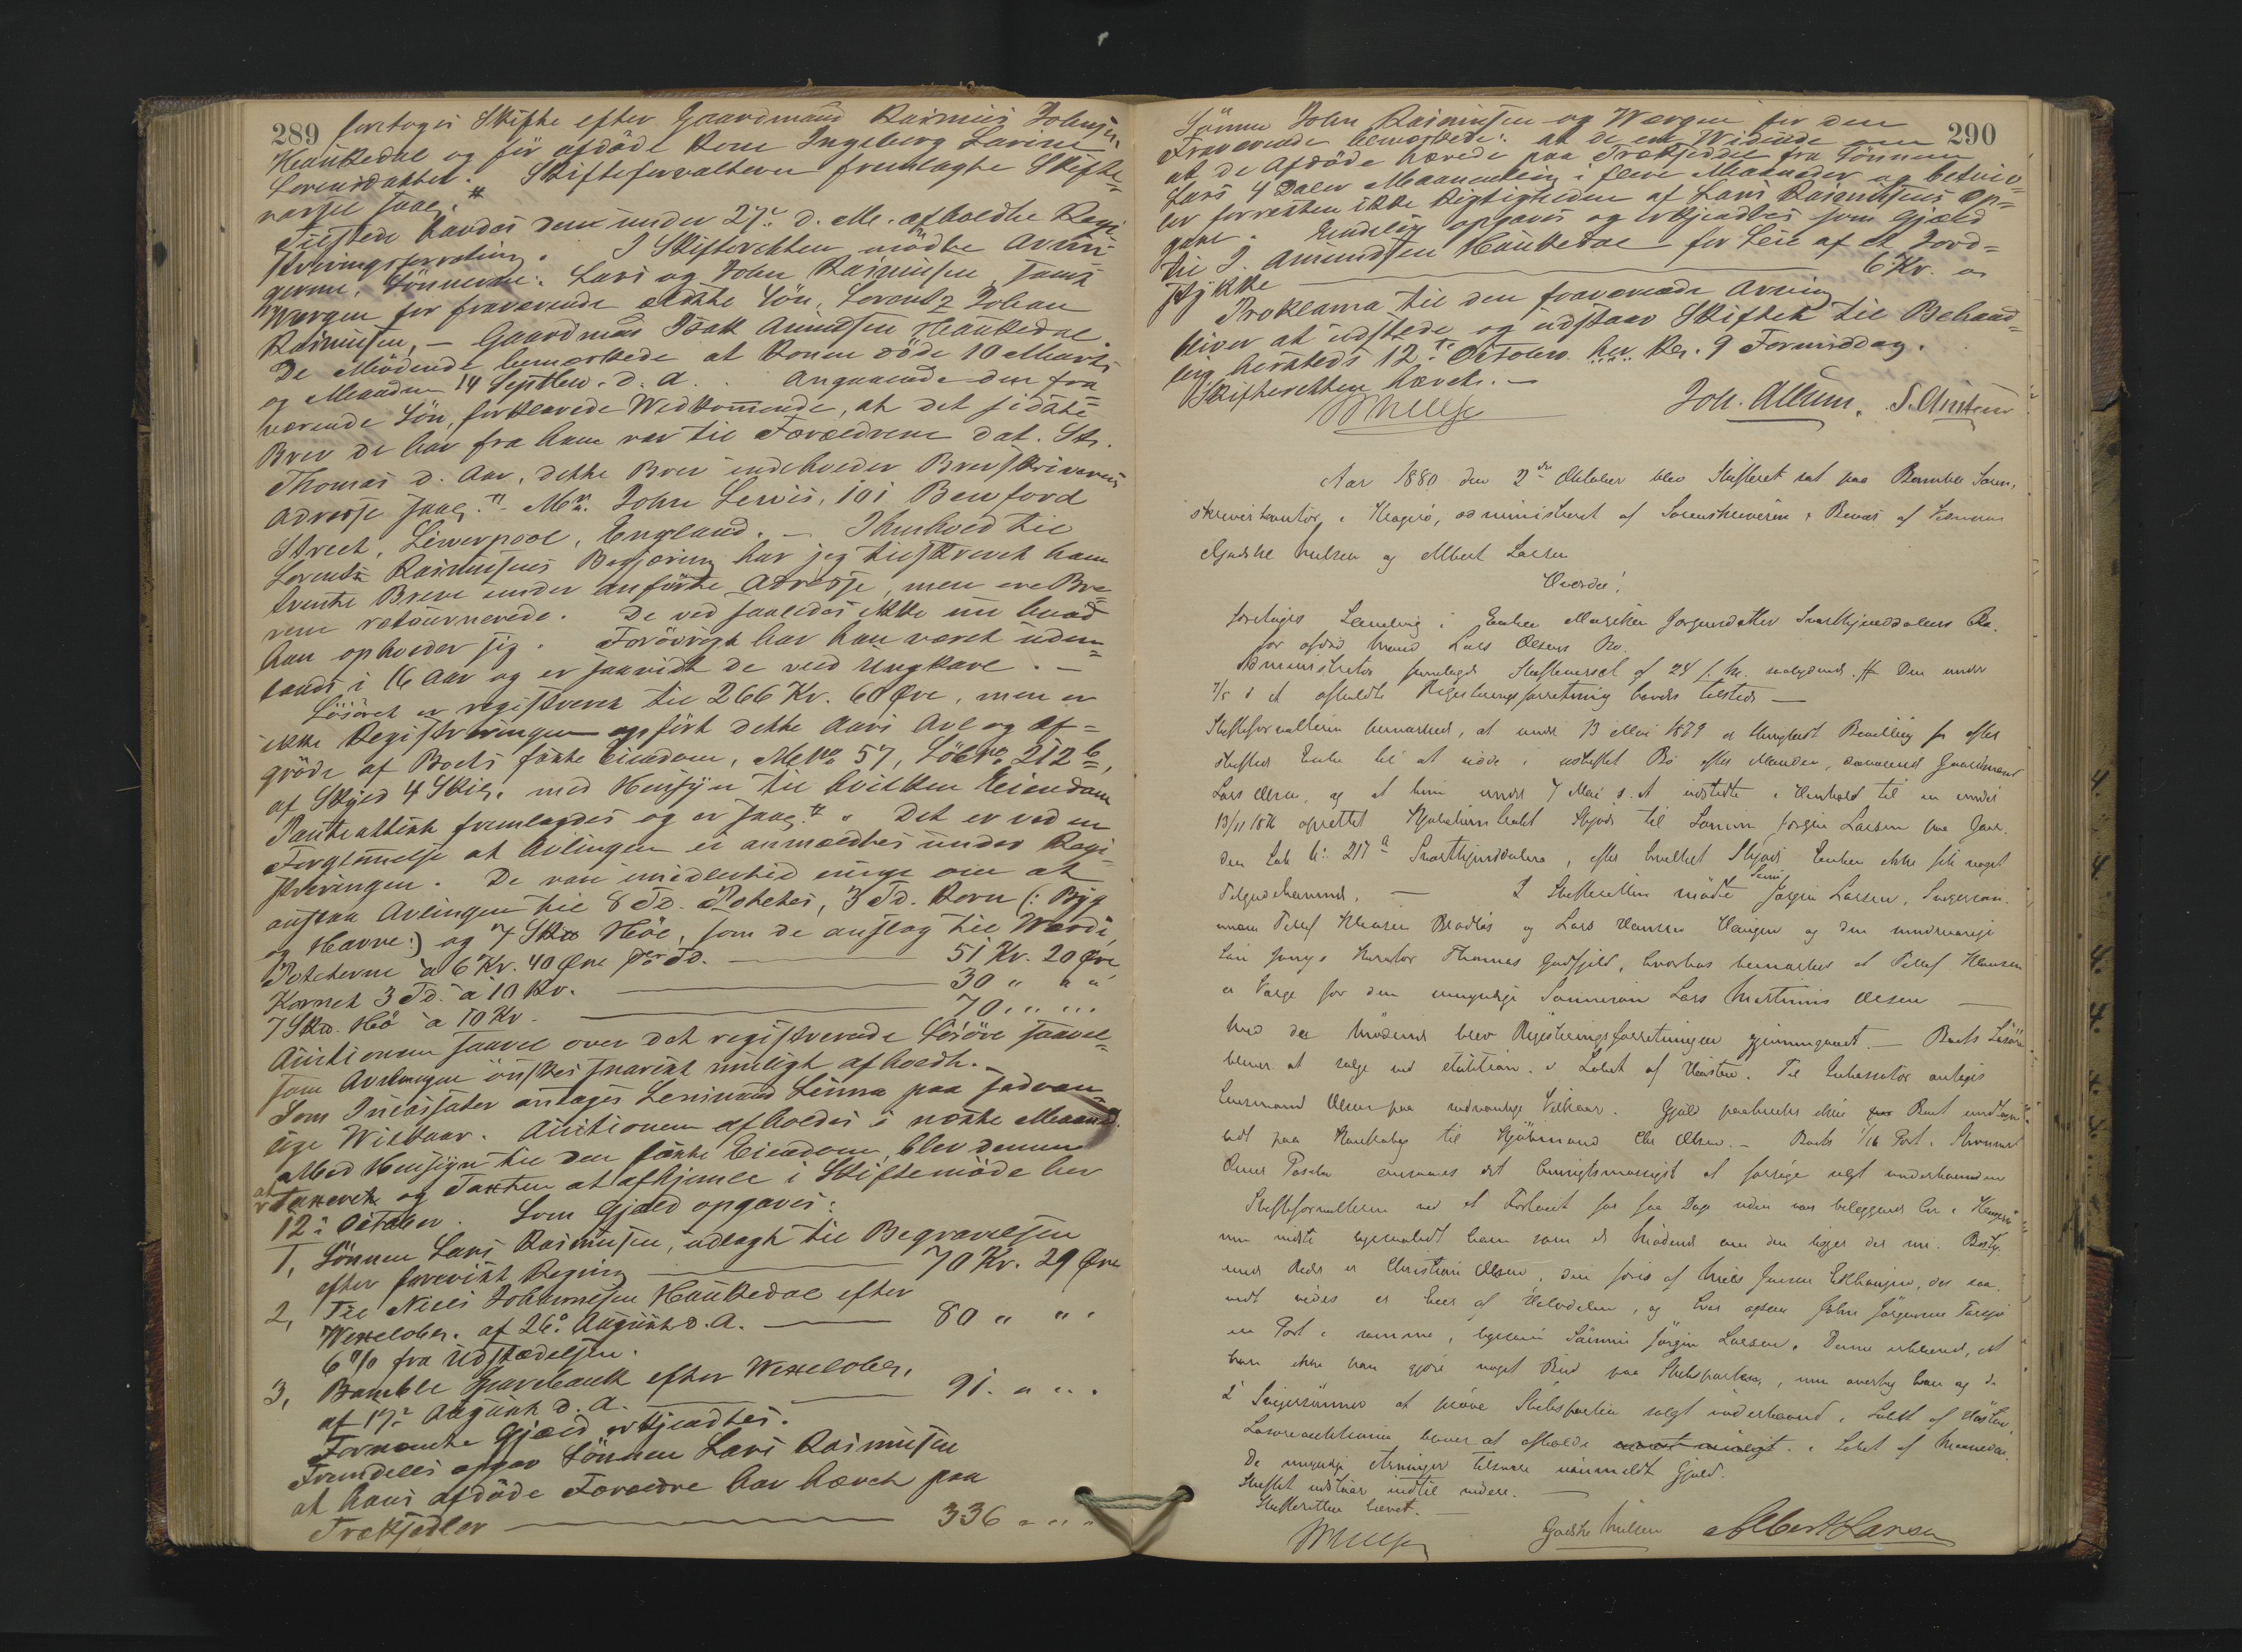 289
foretoges Skifte efter Gaardmand Rasmus Johnsen
Haukedal og før afdøde Kone Ingeborg Lavine
Lorensdatter. Skifteforvalteren fremlagte Skifte=
varsel saal. #
Tilstede havdes den under 27de d. M. afholdte Regi=
streringsforretning. I Skifteretten mødte Arvin=
gerne, Sønnerne: Lars og John Rasmussen, samt
Værgen for fraværende ældste Søn, Lorentz Johan
Rasmussen, – Gaardmand Isak Amundsen Haukedal.
De Mødende bemærkede at Konen døde 10 Marts
og Manden 14 Septbr. d. A. Angaaende den fra=
værende Søn, forklarede Vedkommende, at det sidste
Brev de har fra ham var til Forældrene dat. St.
Thomas d. Aar, dette Brev indeholder Brevskriverens
Adresse saal. "Mr. John Lewis, 101 Benford
Street, Liwerpool, England. – Ihenhold til
Lorents Rasmussens Begjæring har jeg tilskrevet ham
trende Breve under anførte Adresse, men ere Bre=
vene retournerede. De ved saaledes ikke nu hvad
han opholder sig. Forøvrigt har han været uden=
lands i 16 Aar og er saavidt de ved Ungkarl. –
Løsøret er registreret til 266 Kr. 60 Øre, men er
ikke Registreringen opført dette Aars Avl og Af=
grøde af Boets faste Eiendom, M No 57, Løb No 212 b,
af Skyld 4 Skil. med Hensyn til hvilken Eiendom
Panteattest fremlagdes og er saal. # " Det er ved en
Forglemmelse at Avlingen ei anmeldtes under Regi=
streringen. De van imidlertid enige om at
anslaa Avlingen til 8 Td. Poteter, 3 Td. Korn (: Byg
og Havre :) og 7 Skd Høe, som de anslog til Værdi,
Poteterne a 6 Kr. 40 Øre pr Td. 51 Kr. 20 Øre
Kornet 3 Td. a 10 Kr. 30 " " "
7 Skd. Hø a 10 Kr. 70 " " "
Auktionen saavel over det registrerede Løsøre saavel=
som Avlingen ønskes snarest muligt afholdt. –
Som Incassator antages Lensmand Linna paa sædvan=
lige Vilkaar. Auktionen afholdes i næste Maaned.
Med Hensyn til den faste Eiendom, blev denne
at Taxeret og Taxten at afhjemle i Skiftemøde her
12te October. Som Gjæld opgaves:
1, Sønnen Lars Rasmussen, udlagt til Begravelsen
efter forevist Regning 70 Kr. 29 Øre
2, Til Niels Johannesen Haukedal efter
Wexelobl. af 26de August d. A. 80 " " "
6 % fra Udstædelsen.
3, Bamble Sparebank efter Wexelobl.
af 17de August d. A. 91. " " "
Fornævnte Gjæld erkjendtes.
Fremdeles opgav Sønnen Lars Rasmussen
at hans afdøde Forældre har hævet paa
Trækseddler 336 " " "
290
Sønnen John Rasmussen og Værgen for den
Fraværende bemærkede: at de ere Vidende om
at de Afdøde hævede paa Trækseddel fra Sønnen
Lars 4 Daler Maanedlig i flere Maaneder og betvi=
ler forresten ikke Rigtigheden af Lars Rasmussens Op=
gave. Endelig opgaves og erkjendtes som Gjæld
til J. Amundsen Haukedal for Leie af et Jord=
stykke 6 Kr. "
Proklama til den fraværende Arving
bliver at udstede og udstaar Skiftet til Behand=
ling hersteds 12te October her Kl. 9 Formiddag.
Skifteretten hævet. –
Joh. Allum.
Aar 1880 den 2den Oktober blev Skifteret sat paa Bamble Soren=
skriverkontor i Kragerø, administreret af Sorenskriveren i Bevær af Vidnerne
Gjadske Nielsen og Albert Larsen
Hvorda:
foretoges Samling i Enken Mariken Jørgensdatter Svartkjenddalens Bo.
før afdød Mand Lars Olsens Bo.
Administrator fremlagde Skiftevarsel af 24 f. M. saalydende # Den under
7/5 d A afholdte Registreringsforretning havdes tilstede –
Skifteforvalteren bemærkede, at under 13 Mai 1879 er Kongeligt Bevilling for efter=
Enke til at sidde i uskiftet Bo efter Manden, Gaardmand
Lars Olsen, og at hun under 7 Mai s. A udstedte i Henhold til en under
oprettet Kjøbekontrakt Skjøde til Sønnen Jørgen Larsen paa Gaar=
den Løb No 217 a Svartkjenddalen, efter hvilket Skjøde Enken ikke fik noget
Tilgodehavende. – I Skifteretten mødte Sønnen Jørgen Larsen, Svigersøn=
nerne Tellef Klausen og Lars Hansen og den mindreaarige
Søn Kurator Thomas Godfjeld, hvorhos bemærkes at Tellef Klausen
er Værge for den umyndige Sønnesøn Lars Martinius Olsen –
Med de Mødende blev Registreringsforretningen gjennemgaaet. – Boets Løsøre
bliver at sælge ved Auktion i Løbet af Høsten. Til Inkassator antages
Lensmand Olsen paa sædvanlige Vilkaar. Gjæld paahviler ikke Boet undtagen
lidt paa til Kjøbmand Chr Olsen. – Boets 1/16 Part i Skonnert
ansaaes det hensigtsmæssigst at forsøge solgt underhaanden
Skifteforvalteren
reder er Christian Olsen, den føres af Niels Jensen
vidt vides er Eier af Halvdelen, og hver John Jørgensen
en Part i samme, ligesom Sønnen Jørgen Larsen. Denne erklærede, at
han ikke kan gjøre noget Bud paa Skibsparten, men overtog han og de
2 Svigersønner at prøve Skibsparten solgt underhaand i Løbet af Høsten.
Løsøreauktionen bliver at afholde snarest muligt i Løbet af Maaneden.
De myndige Arvinger tilsvare uanmeldt Gjæld.
Skiftet udstaar indtil videre.
Skifteretten hævet. –
Gjadske Nielsen Albert Larsen